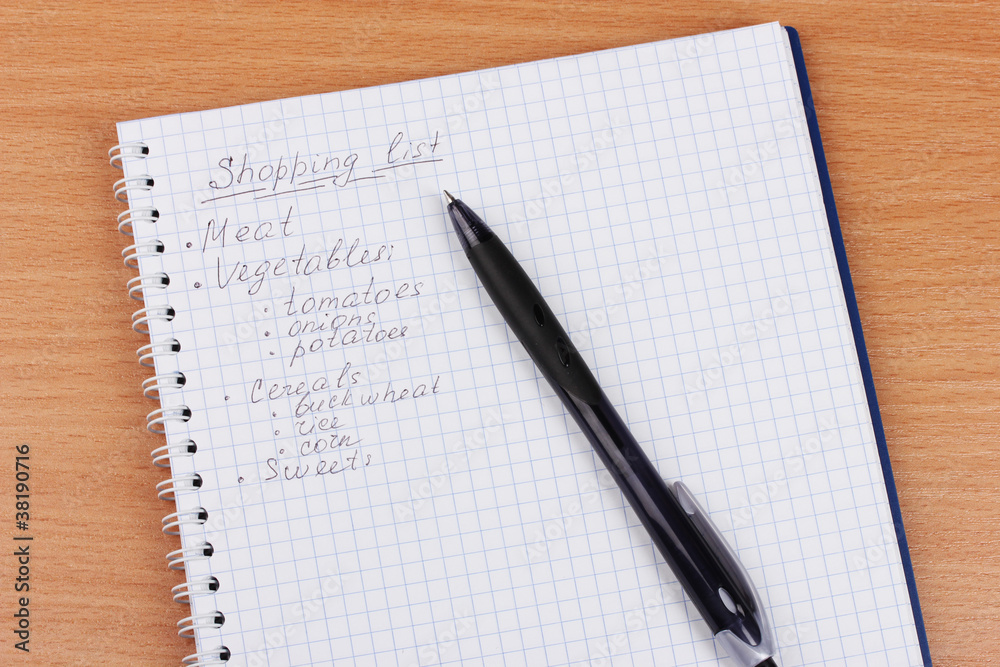 Shopping list
• Meat
• Vegetables:
• tomatoes
• onions
• potatoes
• Cereals
• buckwheat
• rice
• corn
• Sweets
Adobe Stock | #38190716